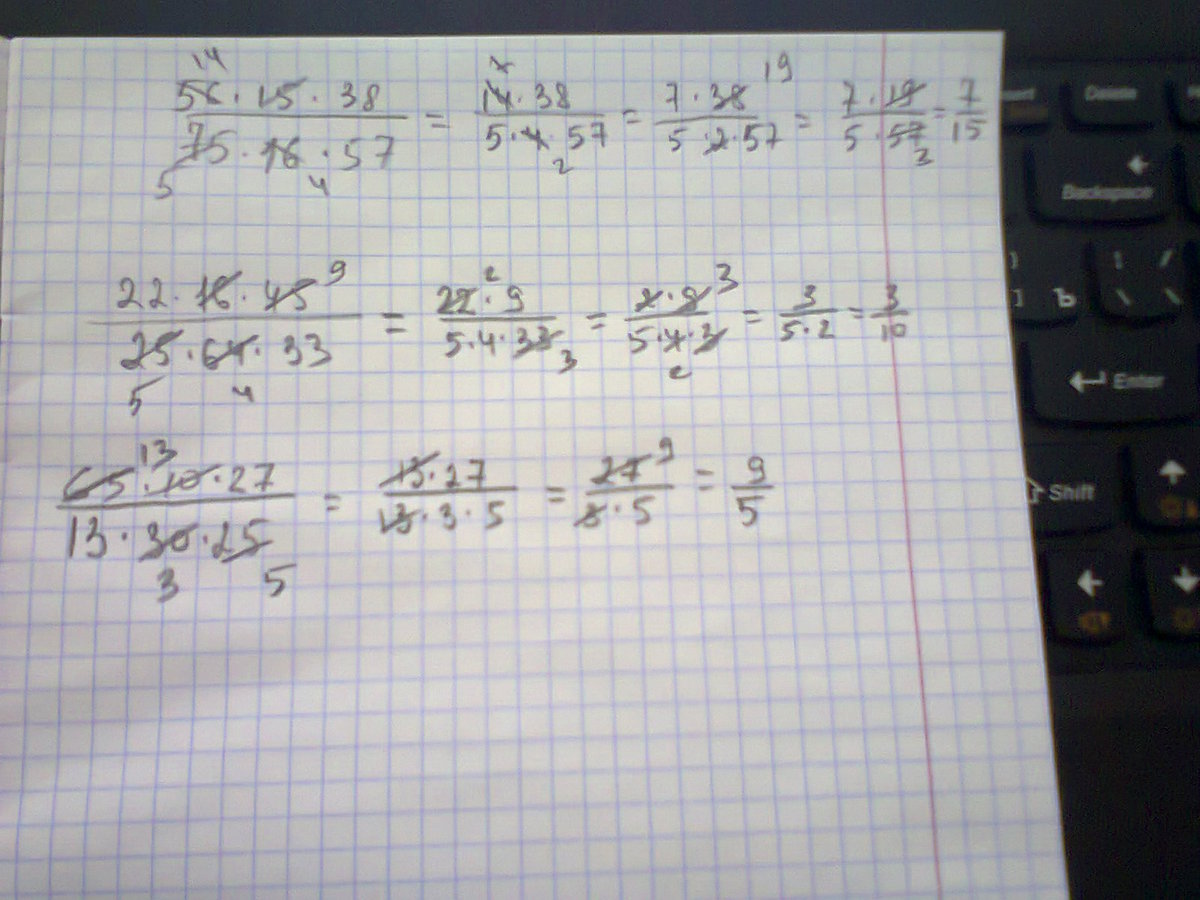 14 7 19
56·15·38 / 75·16·57 = 14·38 / 5·4·57 = 7·38 / 5·2·57 = 7·19 / 5·57 = 7/15
5 4 2 3
9 2 3
22·16·45 / 25·64·33 = 22·9 / 5·4·33 = 2·9 / 5·4·3 = 3 / 5·2 = 3/10
5 4 3 2
13 9
65·10·27 / 13·30·25 = 13·27 / 13·3·5 = 27 / 3·5 = 9/5
3 5
Delete
Backspace
Ъ
Enter
Shift